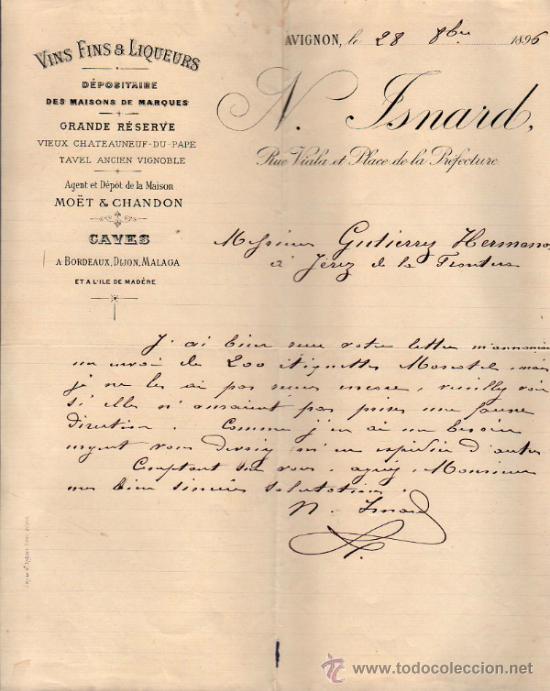 VINS FINS & LIQUEURS
DÉPOSITAIRE
DES MAISONS DE MARQUES
GRANDE RÉSERVE
VIEUX CHATEAUNEUF-DU-PAPE
TAVEL ANCIEN VIGNOBLE
Agent et Dépôt de la Maison
MOËT & CHANDON
CAVES
A BORDEAUX, DIJON, MALAGA
ET A L'ILE DE MADÈRE
AVIGNON, le 28 8bre 1896
N. Isnard,
Rue Viala et Place de la Préfecture
Messieurs Gutierrez Hermanos
à Jérez de la Frontera
J'ai bien reçu votre lettre m'annonçant
un envoi de 200 étiquettes Moscatel, mais
je ne les ai pas reçues encore, veuillez voir
si elles n'auraient pas prises une fausse
direction. Comme j'en ai un besoin
urgent vous devriez m'en expédier d'autres
Comptant sur vous, agréez, Messieurs
mes bien sincères salutations.
N. Isnard
www.todocoleccion.com